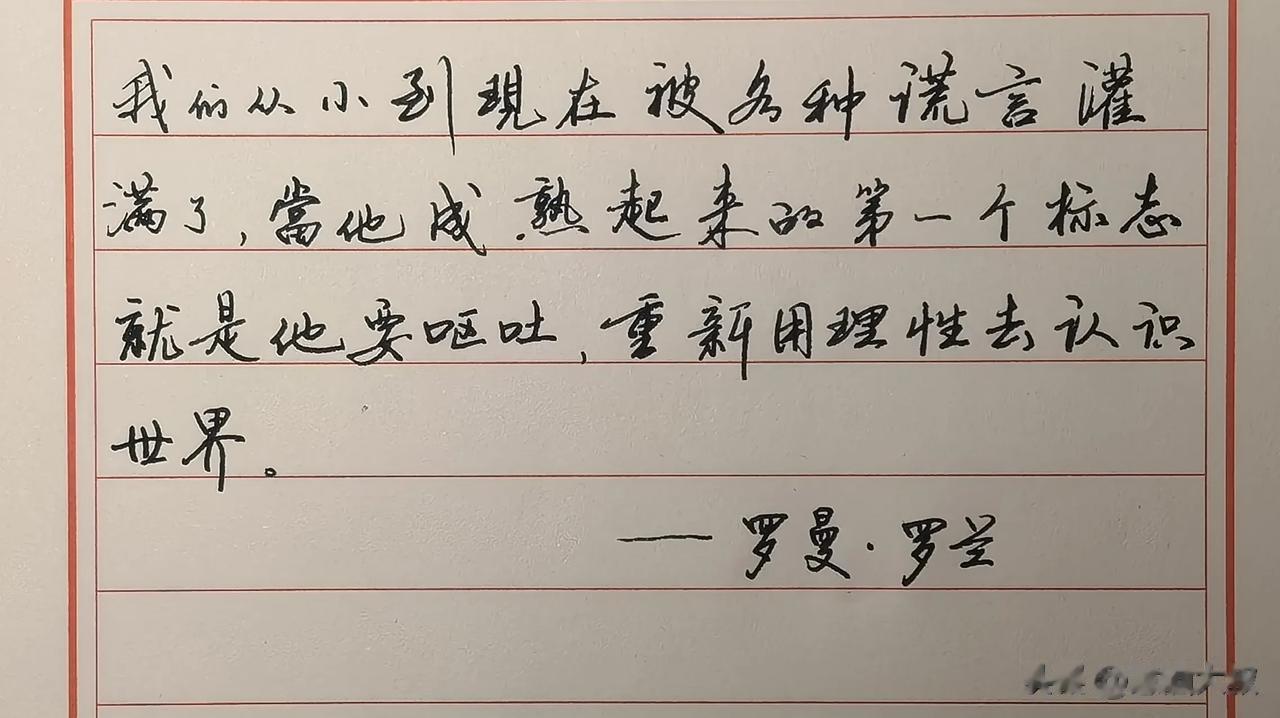 我们从小到現在被各种谎言灌
满了,當他成熟起来的第一个标志
就是他要呕吐,重新用理性去认识
世界。
——罗曼·罗兰